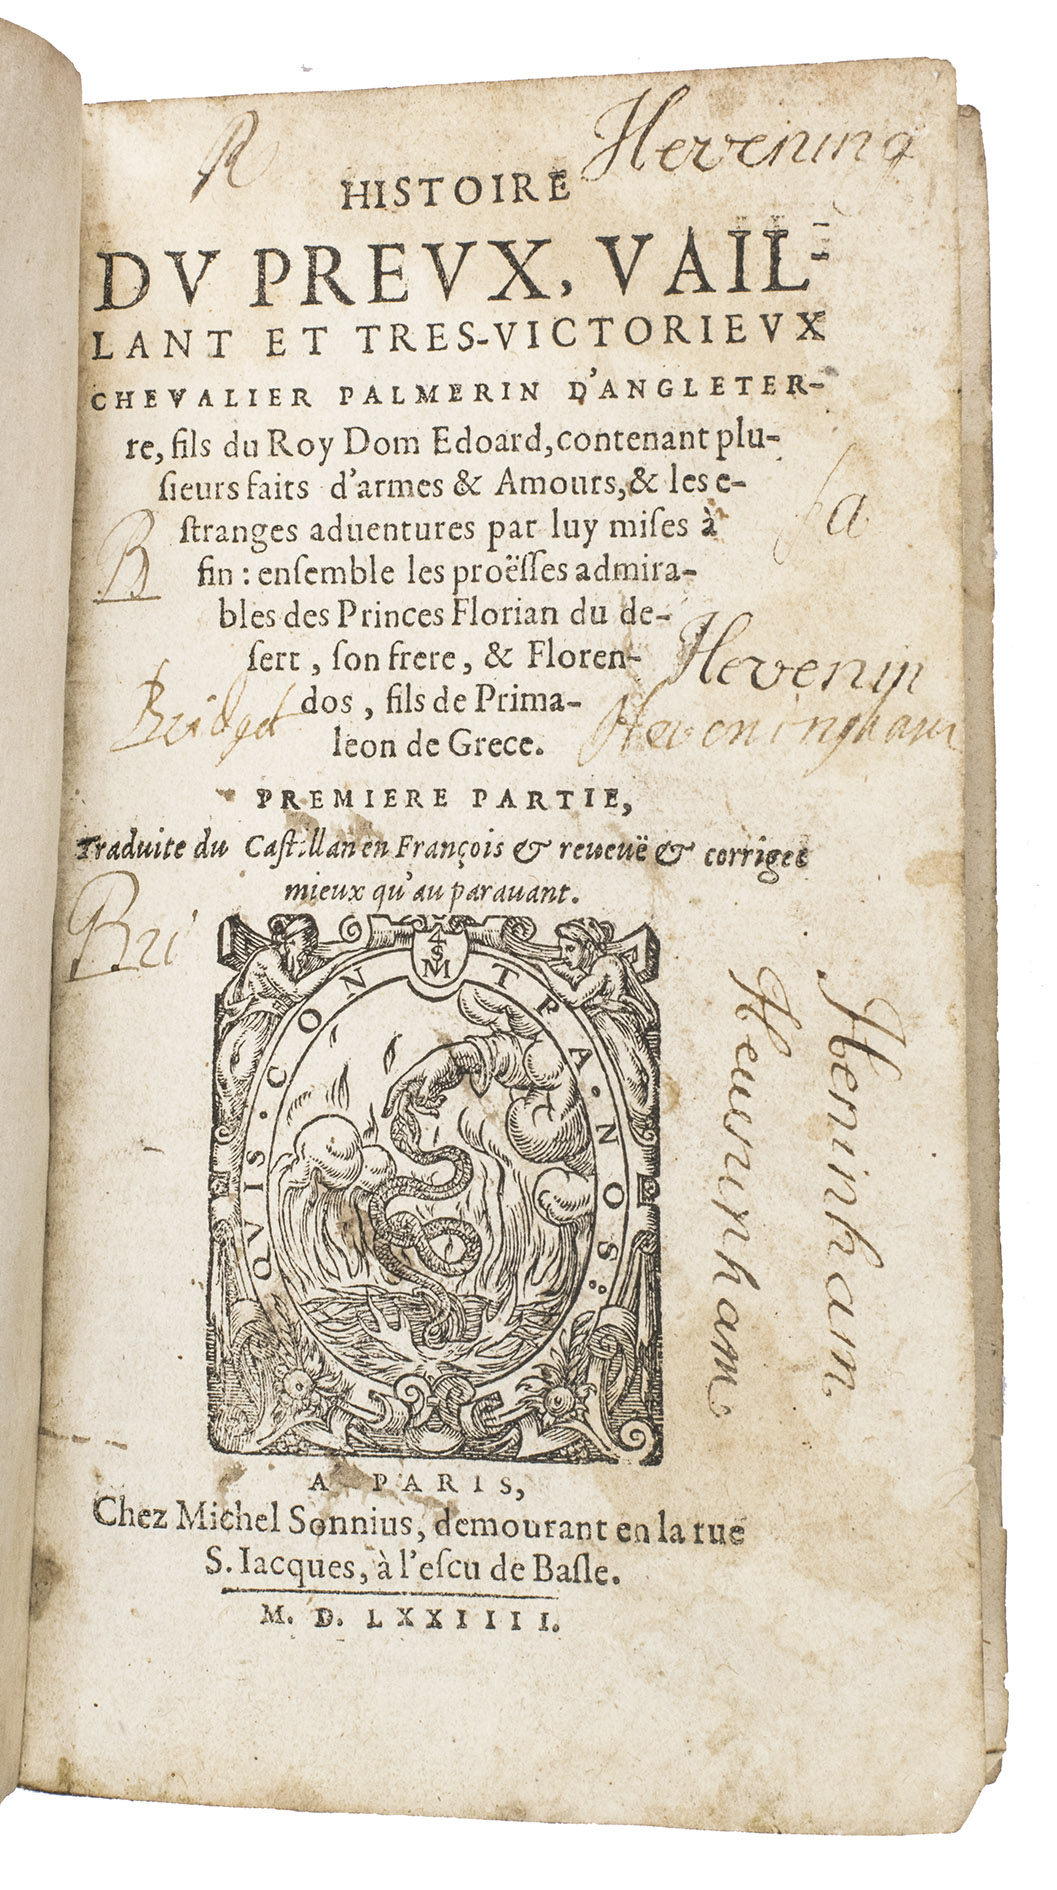 R
Hevening
HISTOIRE
DV PREVX, VAIL-
LANT ET TRES-VICTORIEVX
CHEVALIER PALMERIN D'ANGLETER-
re, fils du Roy Dom Edoard, contenant plu-
ſieurs faits d'armes & Amours, & les e-
ſtranges aduentures par luy miſes à
fin : enſemble les proëſſes admira-
bles des Princes Florian du de-
ſert, ſon frere, & Floren-
dos, fils de Prima-
leon de Grece.
a
B
Hevenin
Bridget
Heveningham
PREMIERE PARTIE,
Traduite du Caſtillan en François & reveuë & corrigee
mieux qu'au paravant.
Bri
4
S
M
QVIS. CONTRA. NOS.
Heninham
Hevinham
A PARIS,
Chez Michel Sonnius, demourant en la rue
S. Iacques, à l'eſcu de Baſle.
M. D. LXXIIII.